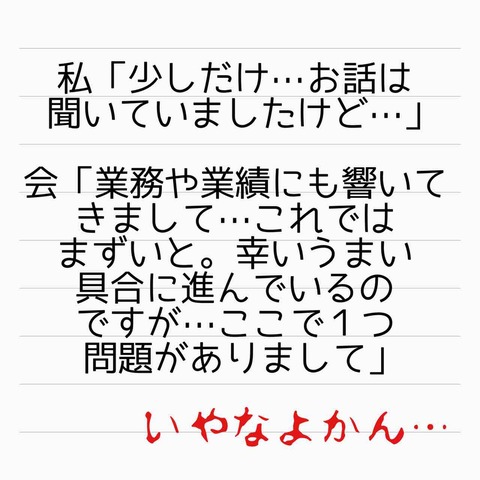 私「少しだけ…お話は
聞いていましたけど…」
会「業務や業績にも響いて
きまして…これでは
まずいと。幸いうまい
具合に進んでいるの
ですが…ここで１つ
問題がありまして」
いやなよかん…